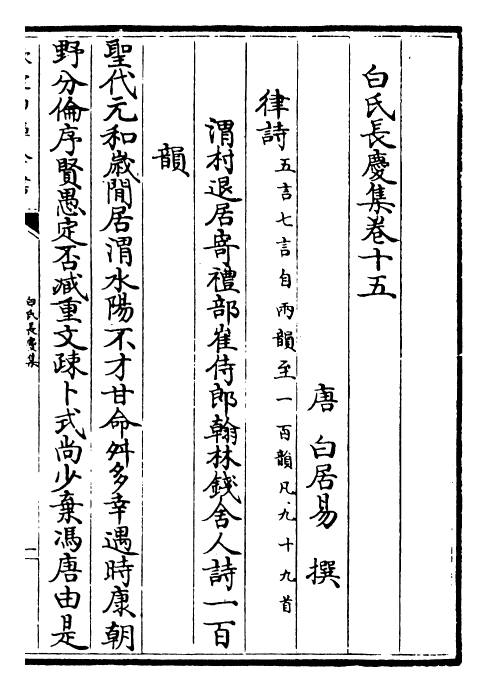 白氏長慶集卷十五
唐 白居易 撰
律詩 五言七言自兩韻至一百韻凡九十九首
渭村退居寄禮部崔侍郎翰林錢舍人詩一百
韻
聖代元和歳閒居渭水陽不才甘命舛多幸遇時康朝
野分倫序賢愚定否臧重文疎卜式尚少棄馮唐由是
白氏長慶集
一